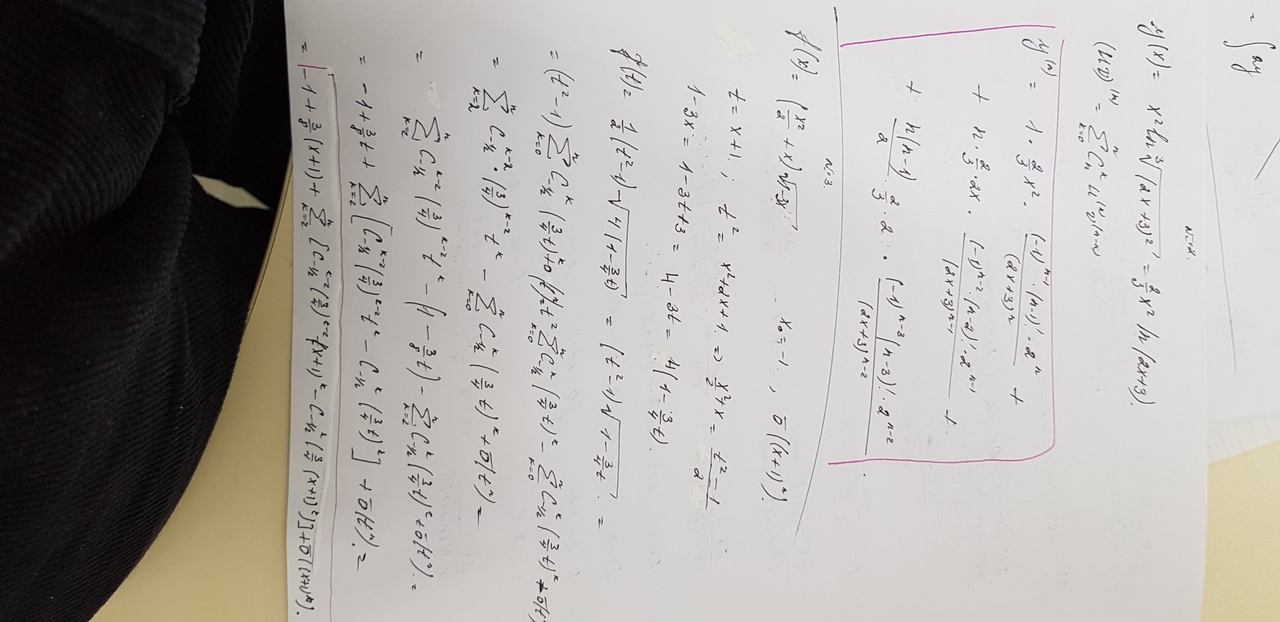 = ∫ dy
N=2.
y(x) = x² ln ∛(2x+3)² = 2/3 x² ln(2x+3).
(uv)^(n) = Σ_{k=0}^{n} C_n^k u^(k) v^(n-k)
y^(n) = 1 · 2/3 x² · (-1)^{n-1} (n-1)! · 2^n / (2x+3)^n +
+ n · 2/3 · 2x · (-1)^{n-2} (n-2)! · 2^{n-1} / (2x+3)^{n-1} +
+ n(n-1)/2 · 2/3 · 2 · (-1)^{n-3} (n-3)! · 2^{n-2} / (2x+3)^{n-2} .
N=3.
f(x) = (x²/2 + x) √(1-3x) x₀ = -1, o((x+1)^n).
t = x+1; t² = x²+2x+1 => x²/2 + x = (t²-1)/2
1-3x = 1-3t+3 = 4-3t = 4(1-3/4 t).
f(t) = 1/2 (t²-1) √(4(1-3/4 t)) = (t²-1) √(1-3/4 t) =
= (t²-1) Σ_{k=0}^{n} C_{-1/2}^k (3/4 t)^k + o(t^n) = t² Σ_{k=0}^{n} C_{-1/2}^k (3/4 t)^k - Σ_{k=0}^{n} C_{-1/2}^k (3/4 t)^k + o(t^n)
= Σ_{k=2}^{n} C_{-1/2}^{k-2} · (3/4)^{k-2} t^k - Σ_{k=0}^{n} C_{-1/2}^k (3/4 t)^k + o(t^n) =
= Σ_{k=2}^{n} C_{-1/2}^{k-2} (3/4)^{k-2} t^k - (1 - 3/8 t) - Σ_{k=2}^{n} C_{-1/2}^k (3/4 t)^k + o(t^n) =
= -1 + 3/8 t + Σ_{k=2}^{n} [C_{-1/2}^{k-2} (3/4)^{k-2} t^k - C_{-1/2}^k (3/4 t)^k] + o(t^n) =
= -1 + 3/8 (x+1) + Σ_{k=2}^{n} [C_{-1/2}^{k-2} (3/4)^{k-2} (x+1)^k - C_{-1/2}^k (3/4 (x+1))^k] + o((x+1)^n).